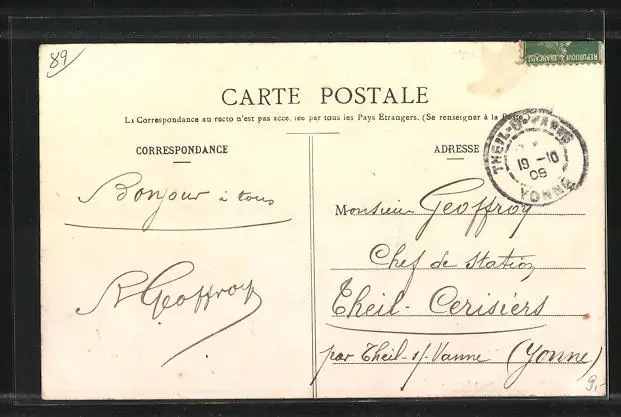 89
REPUBLIQUE FRANÇAISE
CARTE POSTALE
La Correspondance au recto n'est pas acceptée par tous les Pays Étrangers. (Se renseigner à la Poste)
CORRESPONDANCE
ADRESSE
THEIL-S-VANNE
19 -10
08
YONNE
Bonjour à tous
R Geoffroy
Monsieur Geoffroy
Chef de Station
Theil-Cerisiers
par Theil-s/-Vanne (Yonne)
9,-